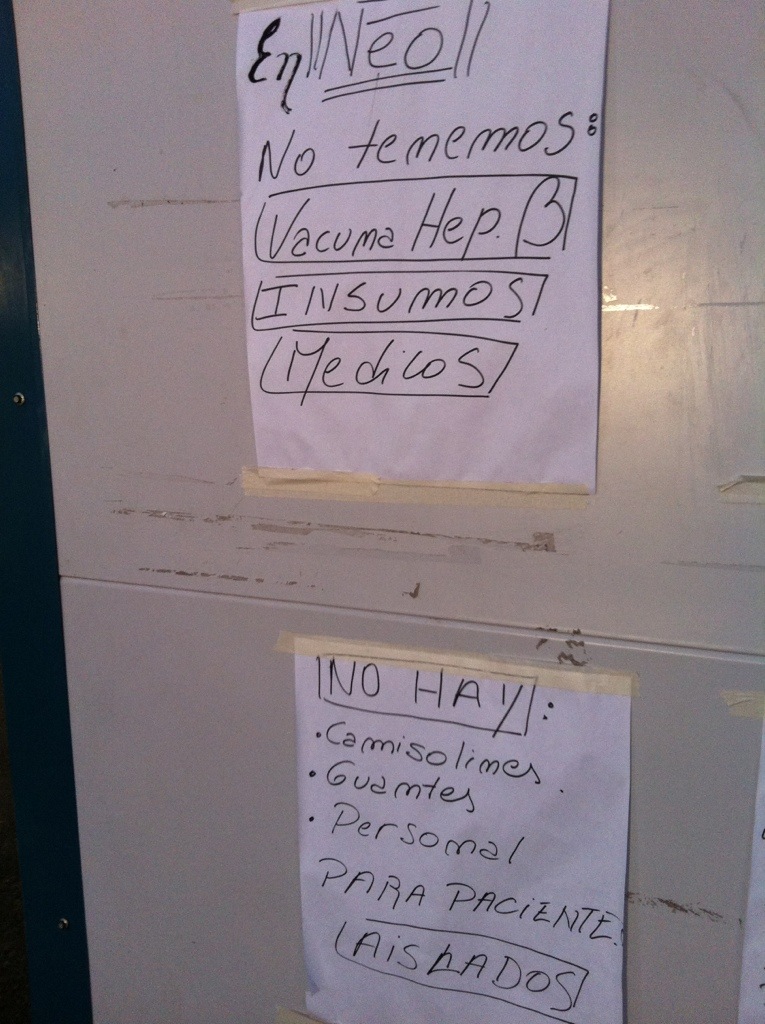 En Neo
No tenemos:
Vacuna Hep. B
INSUMOS
Medicos
NO HAY:
• Camisolines
• Guantes
• Personal
PARA PACIENTE.
AISLADOS